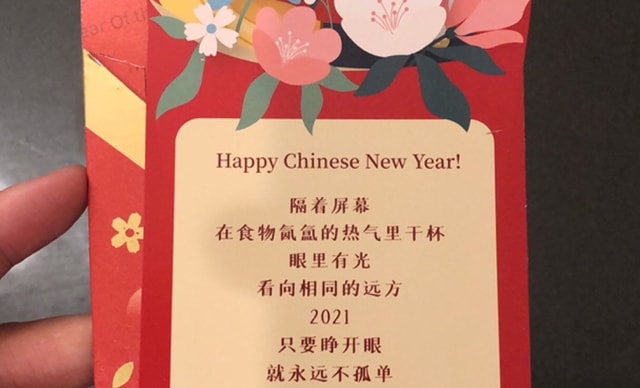 ear Of th
Happy Chinese New Year!
隔着屏幕
在食物氤氲的热气里干杯
眼里有光
看向相同的远方
2021
只要睁开眼
就永远不孤单